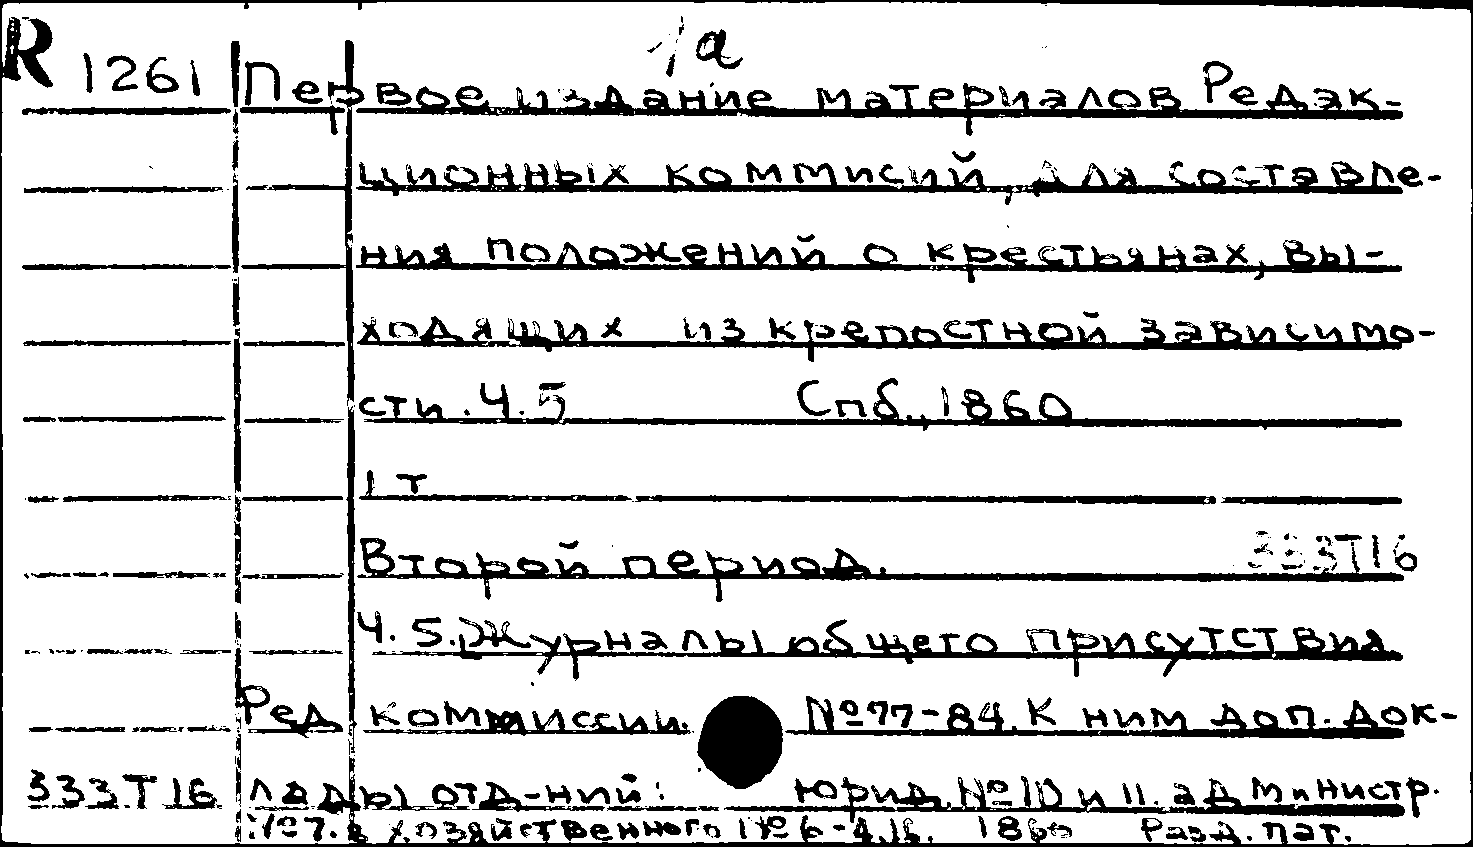 1a
R 1261 Первое издание материалов Редак-
ционных коммисий, для составле-
ния положений о крестьянах, вы-
ходящих из крепостной зависимо-
сти. Ч. 5 Спб., 1860
1 т
Второй период. 333Т16
Ч. 5. Журналы общего присутствия
Ред коммиссии. №77-84. К ним доп. док-
333Т16 лады отд-ний: юрид. №10 и 11. администр.
№7. хозяйственного №6 1860 Разд. пат.